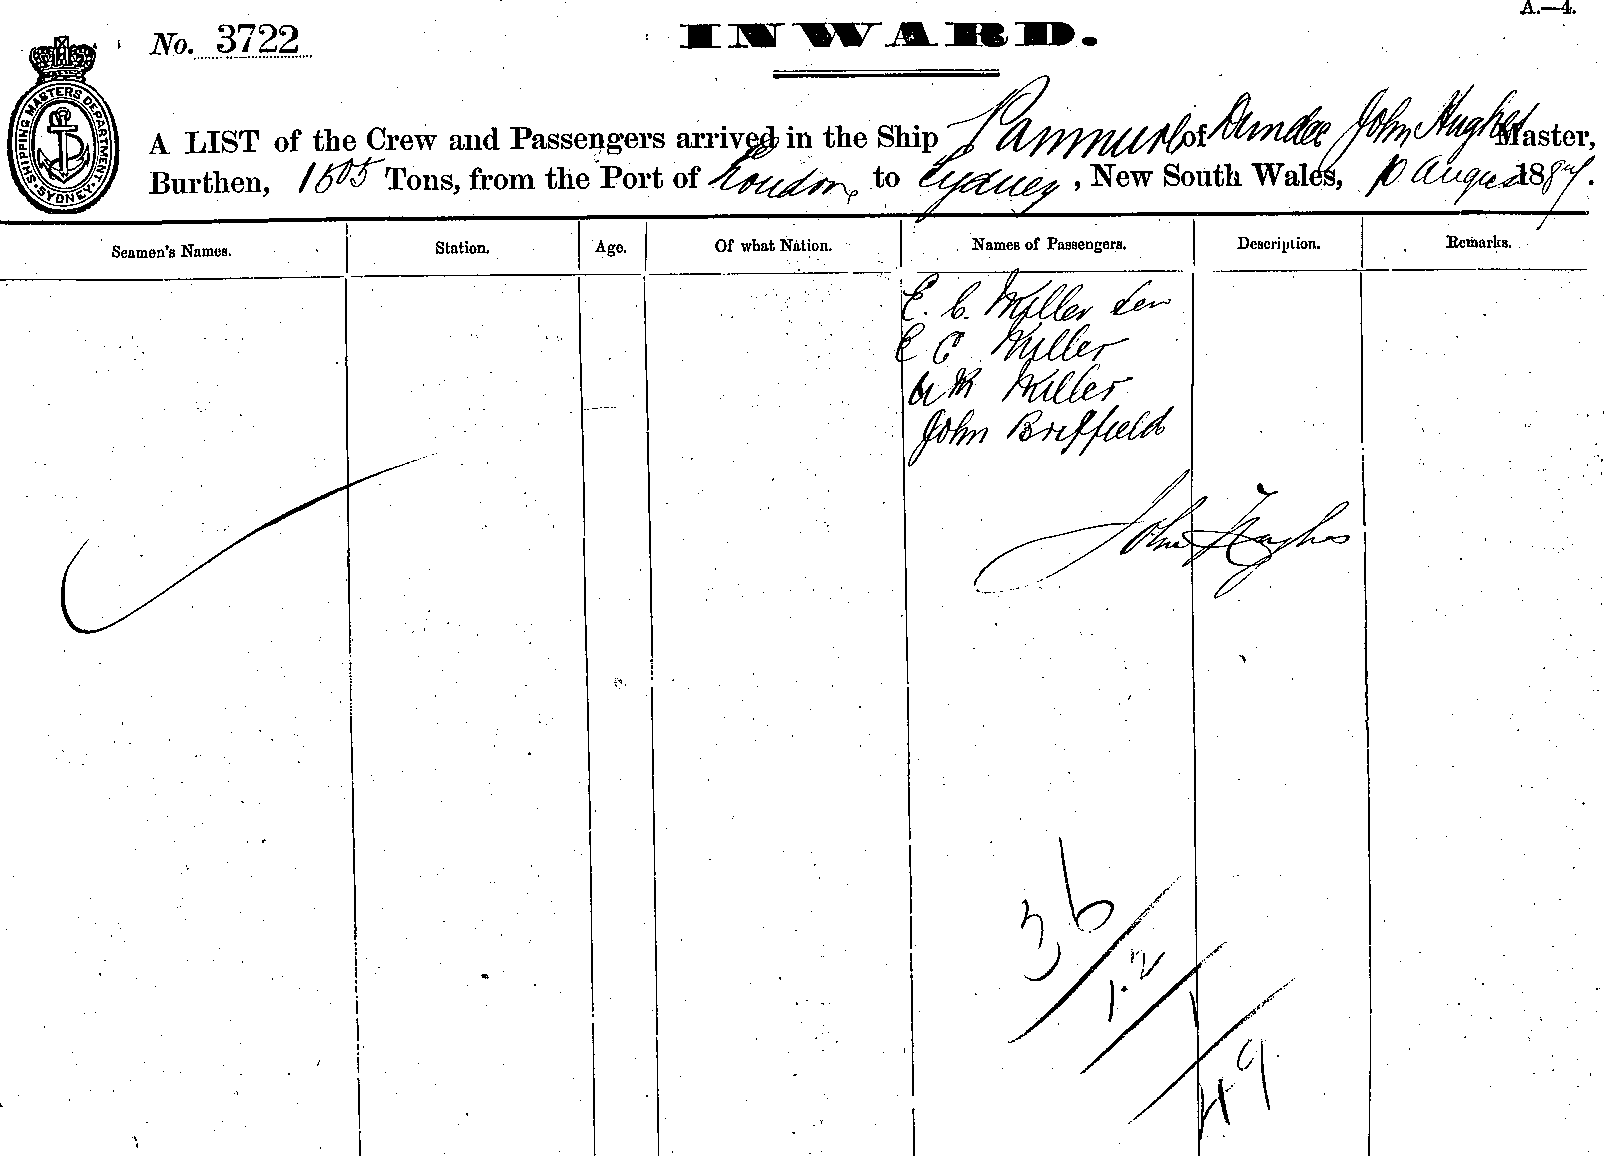 A.—4.
No. 3722
INWARD.
SHIPPING MASTERS DEPARTMENT SYDNEY
A LIST of the Crew and Passengers arrived in the Ship Panmure of Dundee John Hughes Master,
Burthen, 1505 Tons, from the Port of London to Sydney, New South Wales, 10 August 1887.
Seamen's Names. Station. Age. Of what Nation. Names of Passengers. Description. Remarks.
E. C. Miller Sen
E C Miller
Miller
John Breffield
John Hughes
36
12
1
49